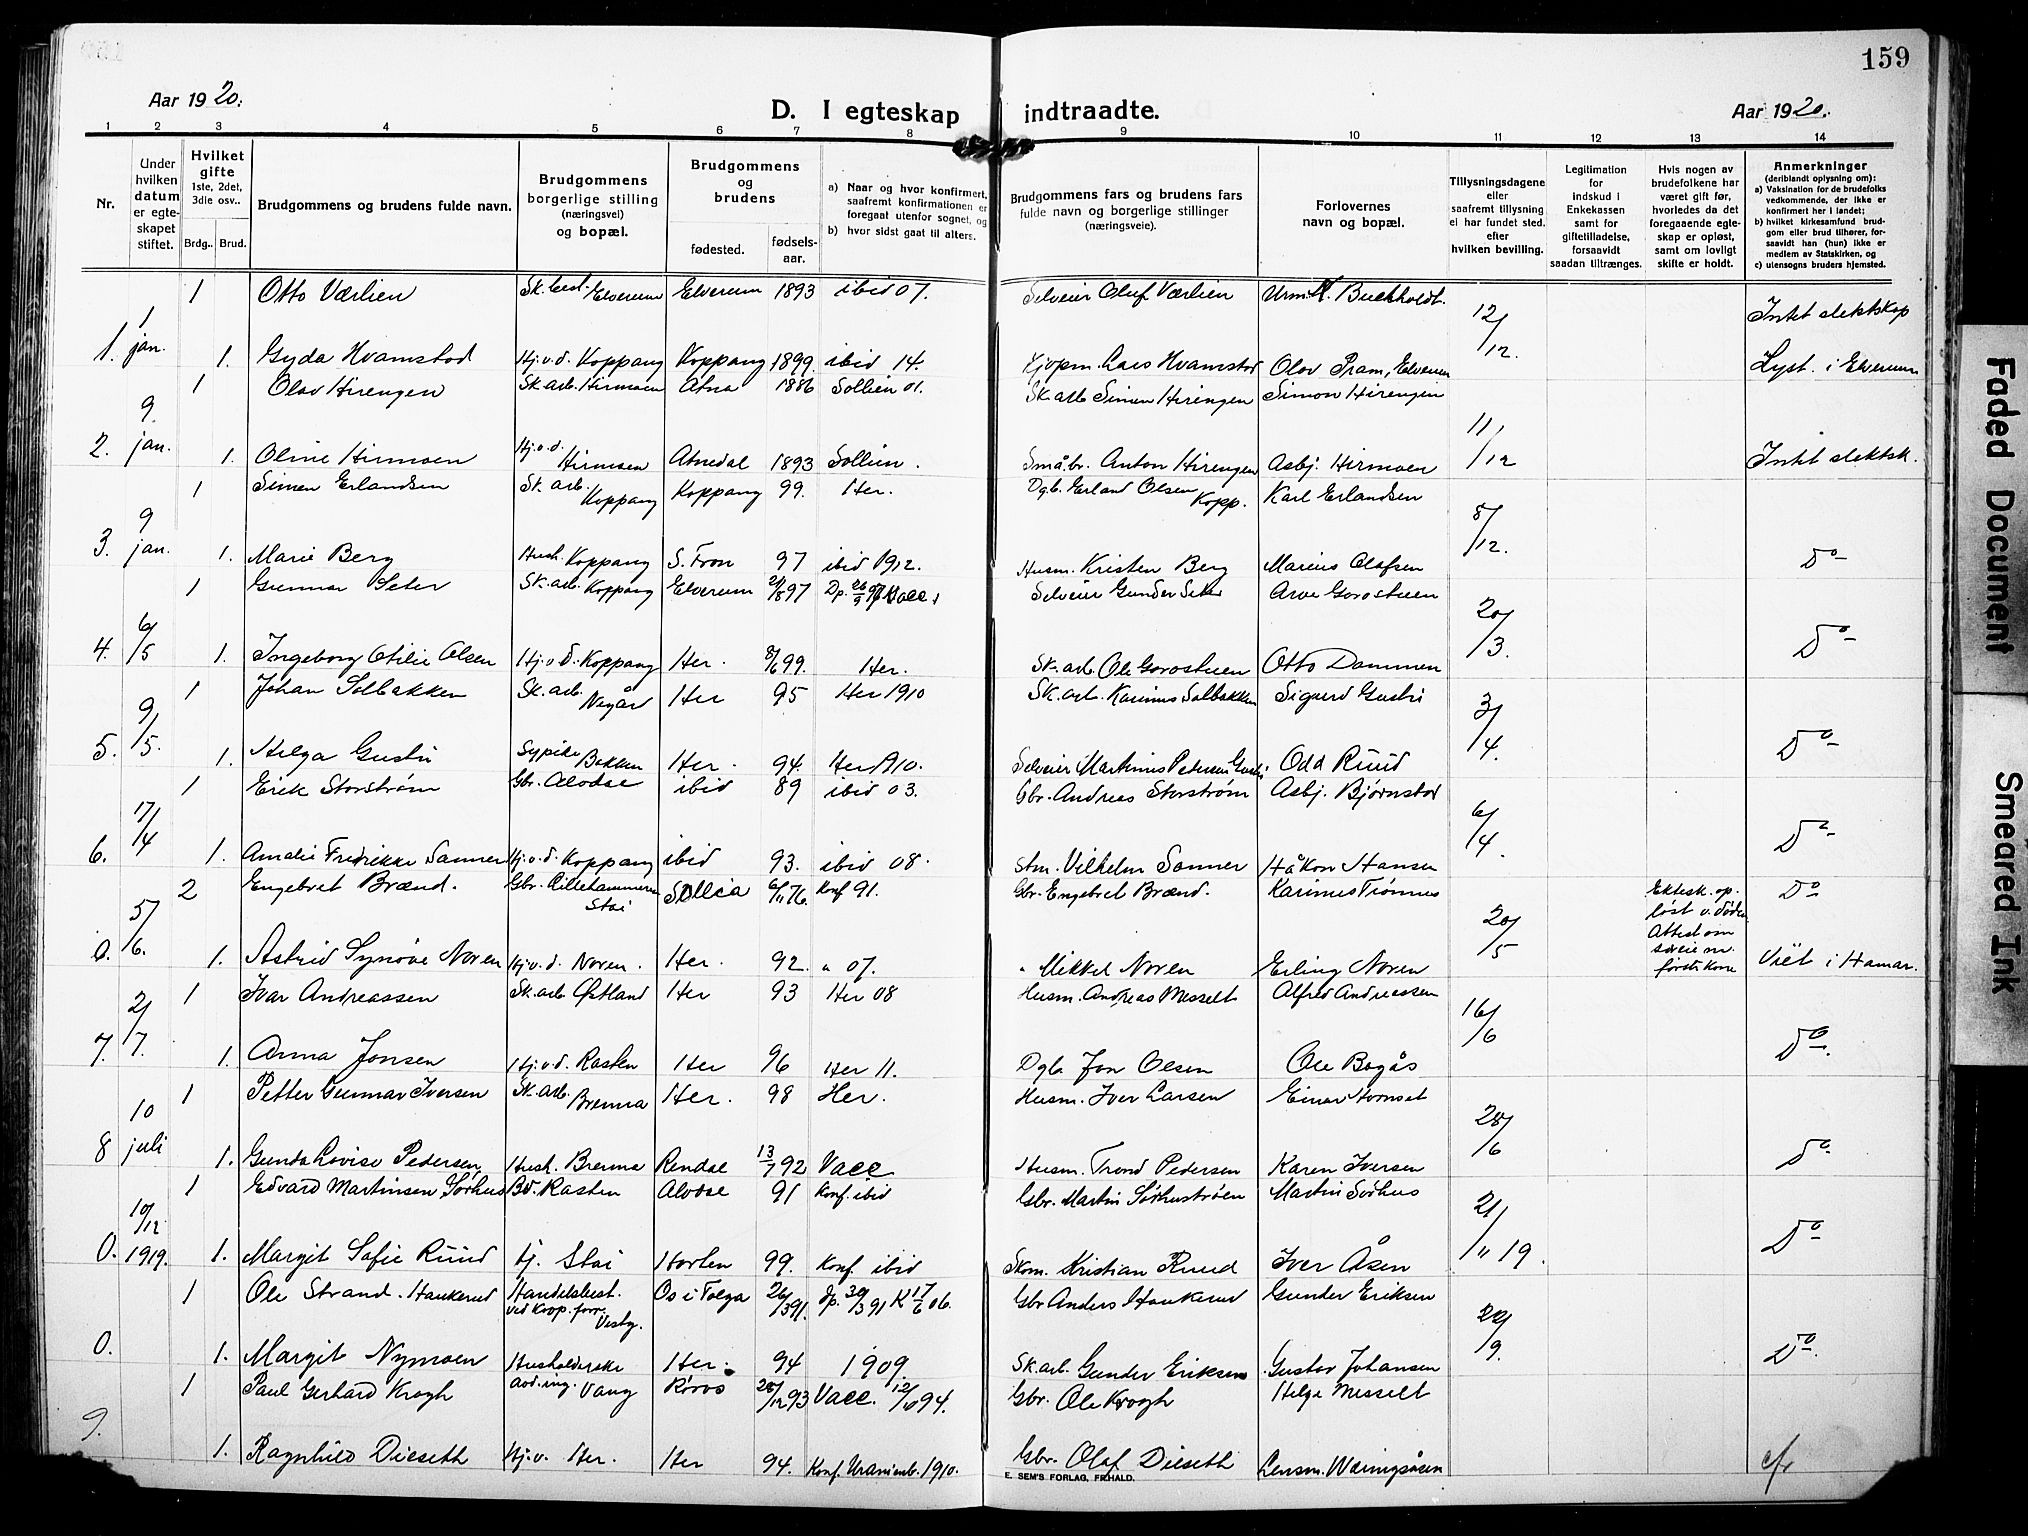 159
Aar 1920.
D. I egteskap indtraadte.
Aar 1920.
1 2 3 4 5 6 7 8 9 10 11 12 13 14
Nr.
Under hvilken datum er egteskapet stiftet.
Hvilket gifte 1ste, 2det, 3die osv..
Brdg.. Brud.
Brudgommens og brudens fulde navn.
Brudgommens borgerlige stilling (næringsvei) og bopæl.
Brudgommens og brudens
fødested. fødsels-aar.
a) Naar og hvor konfirmert, saafremt konfirmationen er foregaat utenfor sognet, og
b) hvor sidst gaat til alters.
Brudgommens fars og brudens fars fulde navn og borgerlige stillinger (næringsveie).
Forlovernes navn og bopæl.
Tillysningsdagene eller saafremt tillysning ei har fundet sted. efter hvilken bevilling.
Legitimation for indskud i Enkekassen samt for giftetilladelse, forsaavidt saadan tiltrænges.
Hvis nogen av brudefolkene har været gift før, hvorledes da det foregaaende egteskap er opløst, samt om lovligt skifte er holdt.
Anmerkninger (deriblandt oplysning om): a) Vaksination for de brudefolks vedkommende, der ikke er konfirmert her i landet; b) hvilket kirkesamfund brudgom eller brud tilhører, forsaavidt han (hun) ikke er medlem av Statskirken, og c) utensogns bruders hjemsted.
1 Otto Værlien Sk.best. Elverum Elverum 1893 ibid 07. Selveier Oluf Værlien Urm. K. Buchholdt. 12/12. Intet slektskap
1. 1 jan. 1. Gyda Hvamstad Hj.v.d. Koppang Koppang 1899. ibid 14. Kjøpm. Lars Hvamstad Olav Pram, Elverum Lyst. i Elverum
1 Olav Hirengen Sk.arb. Hirmoen Atna 1886 Sollien 01. Sk.arb Simen Hirengen Simon Hirengen
2. 9. jan. 1. Oline Hirmoen Hj.v.d. Hirmoen Atnedal 1893 Sollien. Småbr. Anton Hirengen Asbj. Hirmoen 11/12 Intet slektsk.
1 Simen Erlandsen Sk.arb. Koppang Koppang 99. Her. Dgb. Erland Olsen Kopp. Karl Erlandsen
3. 9 jan. 1. Marie Berg Hush. Koppang S. Fron 97 ibid 1912. Husm. Kristen Berg Marius Olafsen 8/12. Do
1 Gunnar Seter Sk.arb. Koppang Elverum 97 Selveier Gunder Seter Arve Gorostuen
4. 6/5 1. Ingeborg Otilie Olsen Hj.v.d. Koppang Her. 8/6 99. Her. Sk.arb. Ole Gorostuen Otto Dammen 20/3. Do
1 Johan Solbakken Sk.arb. Negård Her 95 Her 1910 Sk.arb. Karinius Solbakken Sigurd Gustu
5. 9/5. 1. Helga Gustu Sypike Bakken Her. 94. Her 1910. Selveier Martinus Petersen Odd Ruud 3/4. Do
1 Erik Storstrøm Gbr. Alvdal ibid 89 ibid 03. Gbr. Andreas Storstrøm Asbj. Bjørnstad
6. 17/4 1. Amalie Fredrikke Sanner Hj.v.d. Koppang ibid 93. ibid 08. Stm. Vilhelm Sanner Håkon Hansen 6/4. Do
2 Engebret Brænd. Gbr. Lillehammeren Stai Sollia 6/11 76. Konf 91. Gbr. Engebret Brænd. Karinius Trønnes Ektesk. opløst v. døden. Attest om særeie m. første kone Do
0. 5/6. 1. Astrid Synøve Noren Hj.v.d. Noren. Her. 92. " 07. " Mikkel Noren Erling Noren 20/5 Viet i Hamar.
1 Ivar Andreassen Sk.arb Østland Her 93 Her 08 Husm. Andreas Messelt Alfred Andreassen
7. 2/7. 1. Anna Jonsen Hj.v.d. Rasten Her 96 Her 11. Dgb. Jon Olsen Ole Bogås 16/6 Do.
1 Petter Gunnar Iversen Sk.arb. Brenna Her. 98 Her. Husm. Iver Larsen Einar Hornset
8 10 juli 1. Gunda Lovise Pedersen Hush. Brenna Rendal 13/7 92 Vacc. Husm. Trond Pedersen Karen Iversen 20/6 Do.
1 Edvard Martinsen Sørhus Bd. Rasten Alvdal 91 Konf. ibid Gbr. Martin Sørhustrøen Martin Sørhus
0. 10/12 1919. 1. Margit Sofie Ruud Hj. Stai Horten 99. Konf. ibid Skom. Kristian Ruud Iver Åsen 21/11 19. Do
1 Ole Strand. Haukerud Handelsbest. ved Koop. forr. Os i Tolga 26/3 91. dp. 30/3 91 K 17/6 06. Gbr Anders Haukerud Gunder Eriksen
0. 1. Margit Nymoen Husholderske Her. 94 1909. Sk.arb. Gunder Eriksen Gustav Johansen 20/9. Do.
1 Paul Gerhard Krogh Avd.ing. Vang Røros 93 Vacc. 12/10 94. Gbr. Ole Krogh Helge Messelt
9. 1. Ragnhild Dieseth Hj.v. Her. Her 94. Konf. Uranienb. 1910. Gbr. Olaf Dieseth Lensm. Wæringsåsen cfr
E. SEM'S FORLAG, FR.HALD.
Faded Document
Smeared Ink